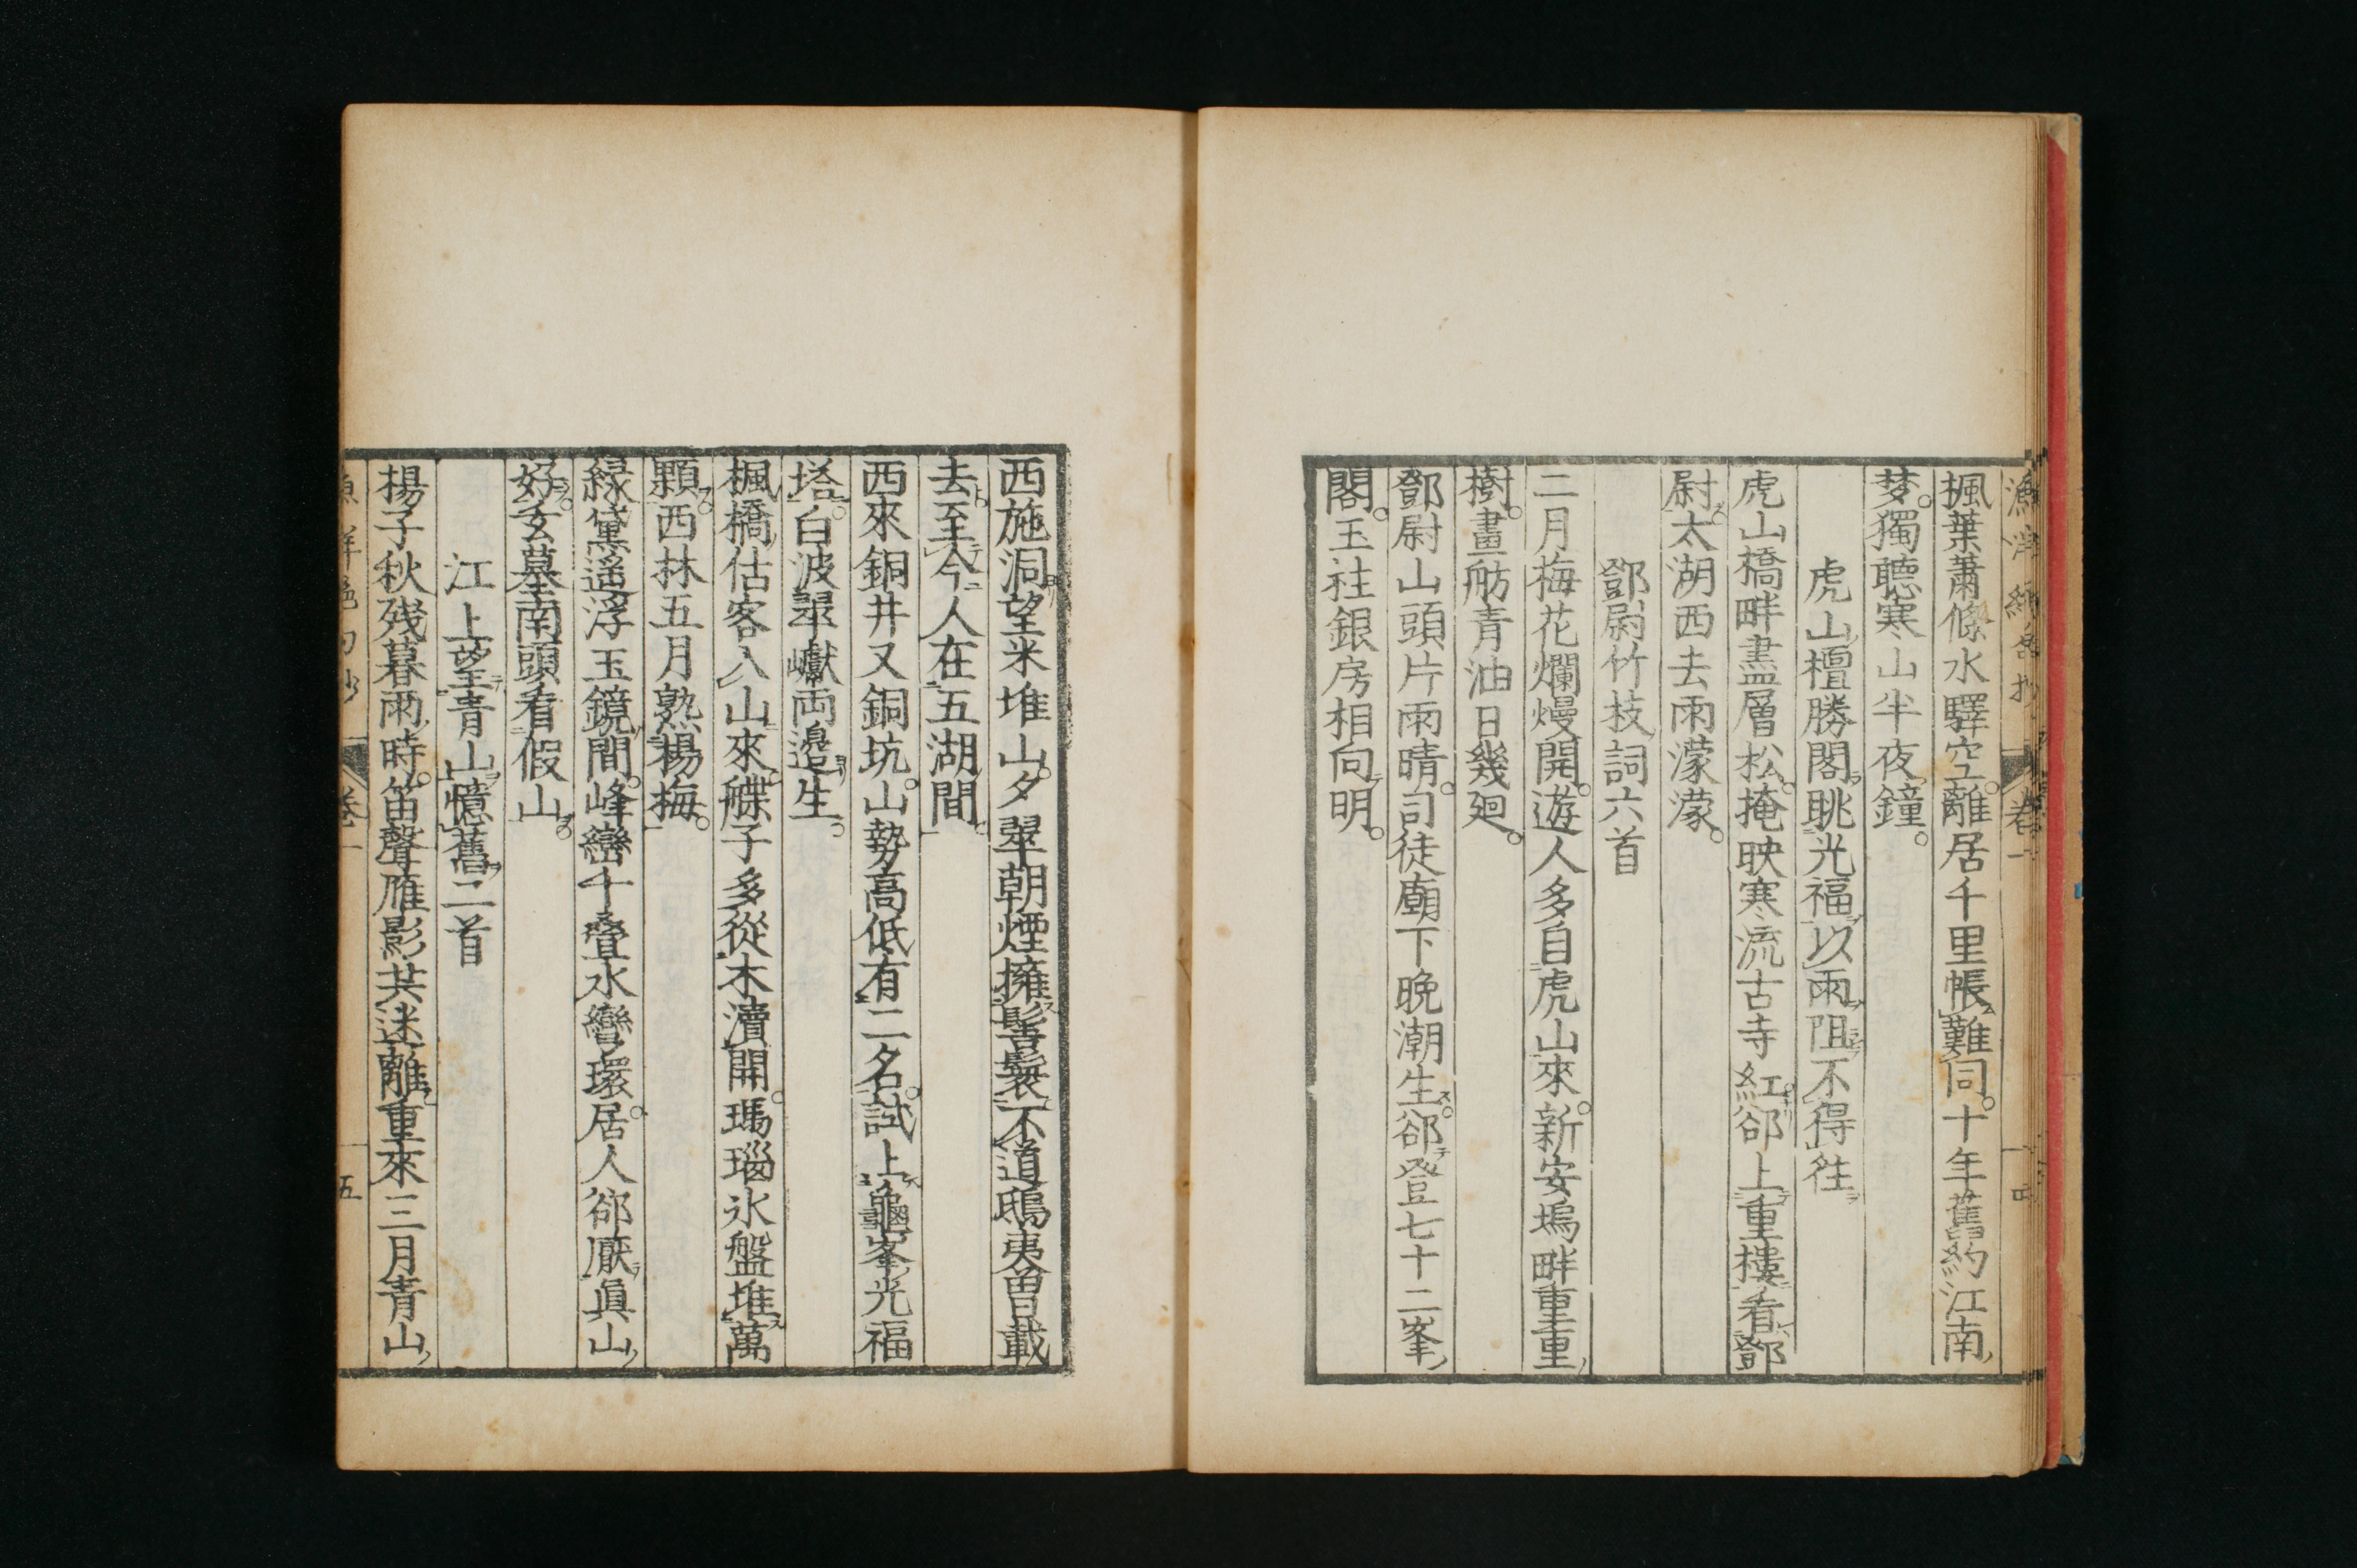 漁洋絶句抄 卷一 四
楓葉蕭條水驛空。離居千里悵難同。十年舊約江南
梦。獨聽寒山半夜鐘。
虎山檀勝閣眺光福以雨阻不得徃
虎山橋畔盡層松。掩映寒流古寺紅。郤上重樓看鄧
尉。太湖西去雨濛濛。
鄧尉竹枝詞六首
二月梅花爛熳開。遊人多自虎山來。新安塢畔重重
樹。畫舫青油日幾廻。
鄧尉山頭片雨晴。司徒廟下晩潮生。郤登七十二峯
閣。玉柱銀房相向明。
西施洞望米堆山。夕翠朝煙擁髻鬟。不道鴟夷曽載
去。至今人在五湖間。
西來銅井又銅坑。山勢高低有二名。試上龜峯光福
塔。白波翠巘両邉生。
楓橋估客入山來。艓子多從木瀆開。瑪瑙氷盤堆萬
顆。西林五月熟楊梅。
緑黛遥浮玉鏡間。峰巒千疊水彎環。居人郤厭眞山
好。玄墓南頭看假山。
江上望青山憶舊二首
楊子秋残暮雨時。笛聲雁影共迷離。重來三月青山
漁洋絶句抄 卷一 五